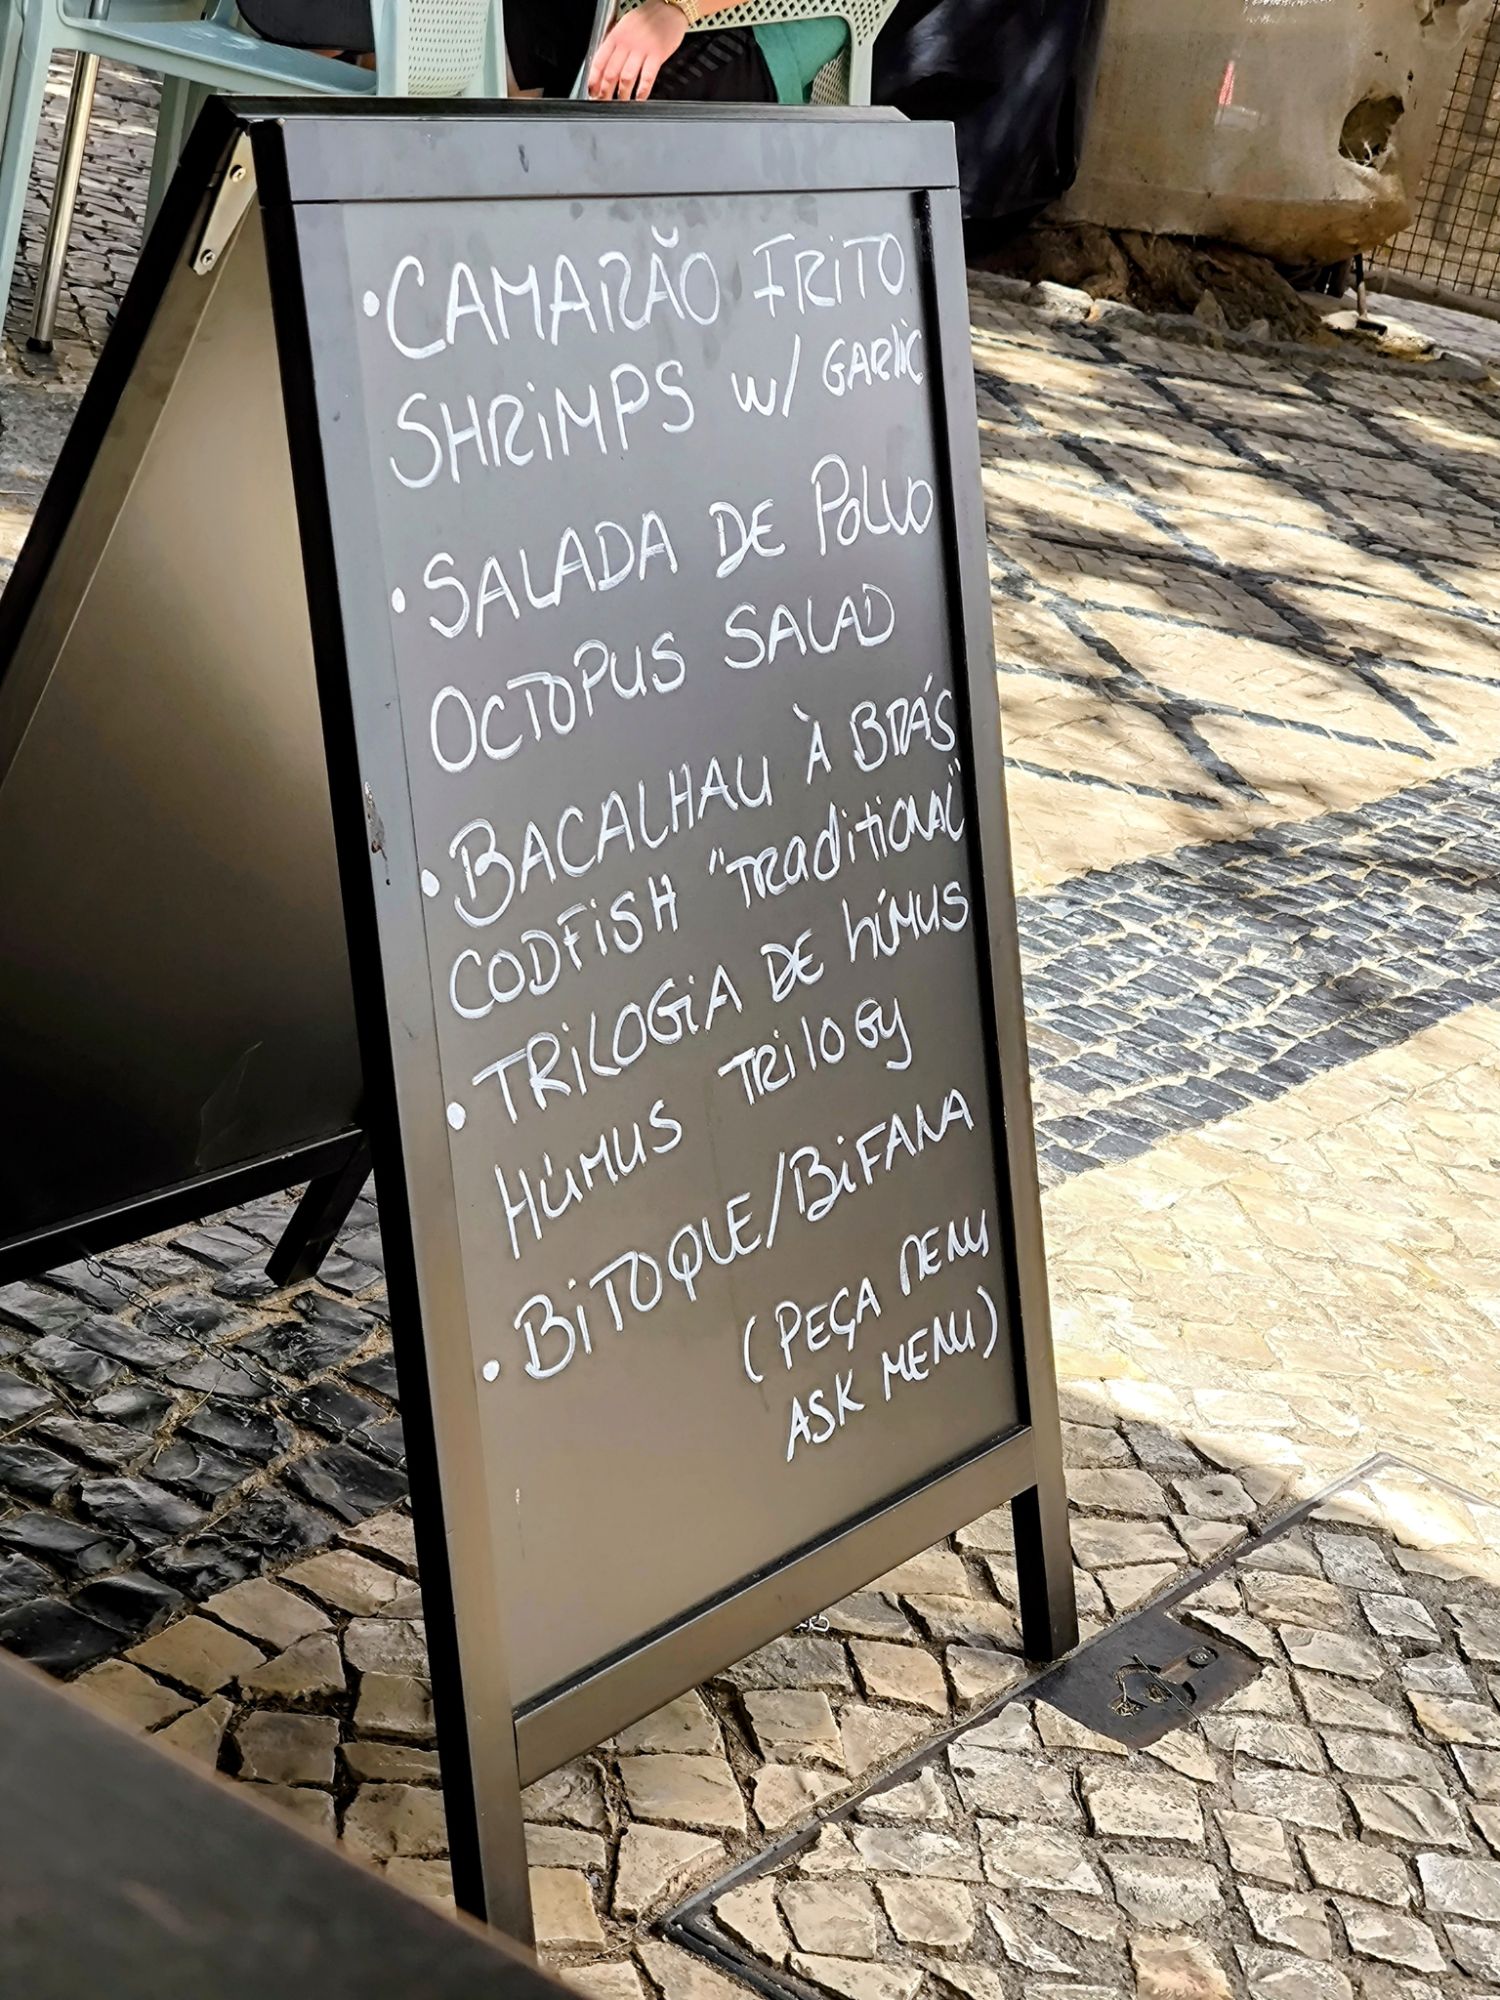 •CAMARÃO FRITO
SHRIMPS w/ GARLIC
•SALADA DE POLVO
OCTOPUS SALAD
•BACALHAU À BRÁS
CODFISH "TRADITIONAL"
•TRILOGIA DE HÚMUS
HÚMUS TRILOGY
•BITOQUE/BIFANA
(PEÇA MENU
ASK MENU)